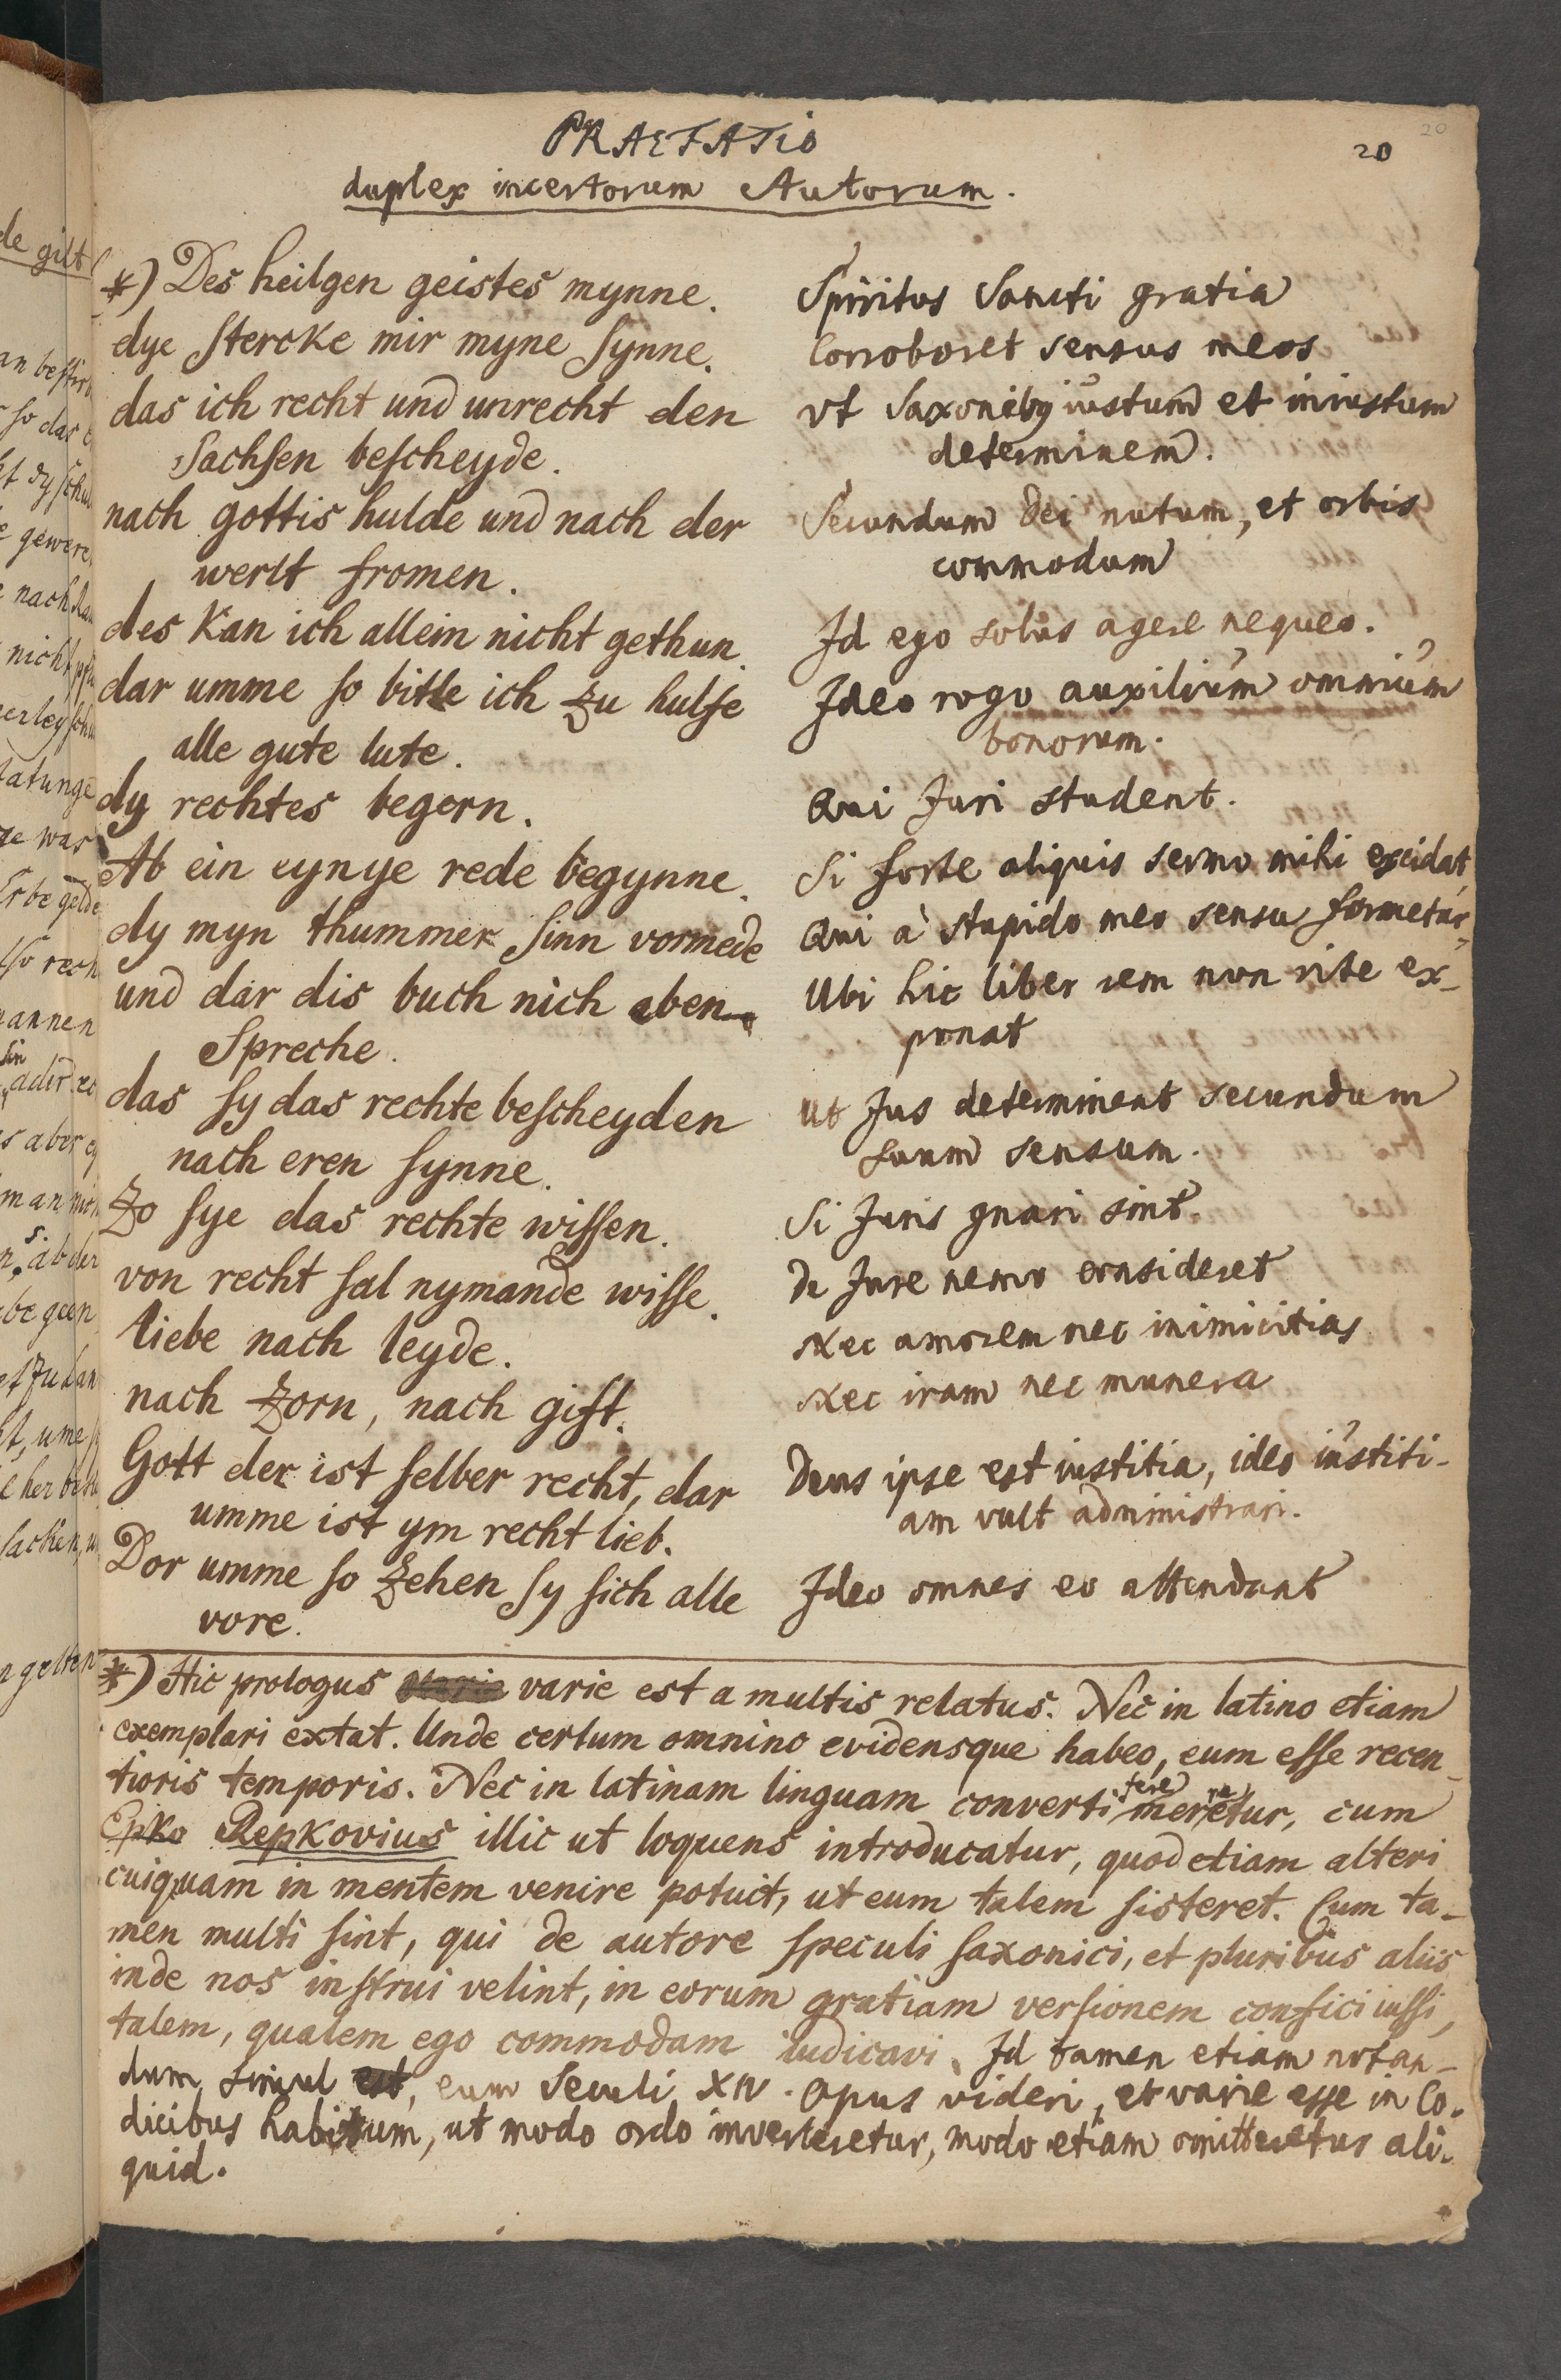 PRAEFATIO
20
20
duplex incertorum Autorum.
*) Des heilgen geistes mynne.
dye stercke mir myne synne.
das ich recht und unrecht den
Sachsen bescheyde.
nach gottis hulde und nach der
werlt fromen.
des kan ich allein nicht gethun.
dar umme so bitte ich zu hulfe
alle gute lute.
dy rechtes begern.
Ab ein eynye rede begynne.
dy myn thummer sinn vormede
und dar dis buch nich eben
Spreche.
das sy das rechte bescheyden
nach eren synne.
Zo sye das rechte wissen.
von recht sal nymande wisse.
liebe nach leyde.
nach zorn, nach gift.
Gott der ist selber recht, dar
umme ist ym recht lieb.
Dor umme so zehen sy sich alle
vore.
Spiritus Sancti gratia
Corroboret sensus meos
vt Saxonibq iustum et iniustum
determinem.
Secundum Dei nutum, et orbis
commodum
Id ego solus agere nequeo.
Ideo rogo auxilium omnium
bonorum.
Qui Juri student.
Si forte aliquis sermo mihi excidat,
Qui à stupido meo sensu formetur,
Ubi hic liber rem non rite ex-
ponat
Ut Jus determinent secundum
suum sensum.
Si Juris gnari sint.
de Jure nemo consideret
Nec amorem nec inimicitias
Nec iram nec munera
Deus ipse est iustitia, ideo iustiti-
am vult administrari.
Ideo omnes eo attendant
*) Hic prologus varie est a multis relatus. Nec in latino etiam
exemplari extat. Unde certum omnino evidensque habeo, eum esse recen-
tioris temporis. Nec in latinam linguam converti fere meretur, cum
Epko Repkovius illic ut loquens introducatur, quod etiam alteri
cuiquam in mentem venire potuit, ut eum talem sisteret. Cum ta-
men multi sint, qui de autore speculi saxonici, et pluribus aliis
inde nos instrui velint, in eorum gratiam versionem confici iussi,
talem, qualem ego commodam iudicavi. Id tamen etiam notan-
dum simul est, eum Seculi XIV. opus videri, et varie esse in Co-
dicibus habitum, ut modo ordo inverteretur, modo etiam omitteretur ali-
quid.